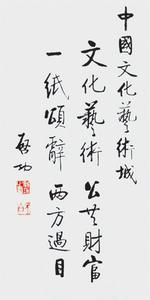 中國文化藝術城
文化藝術 公共財富
一紙頌辭 西方過目
啟功